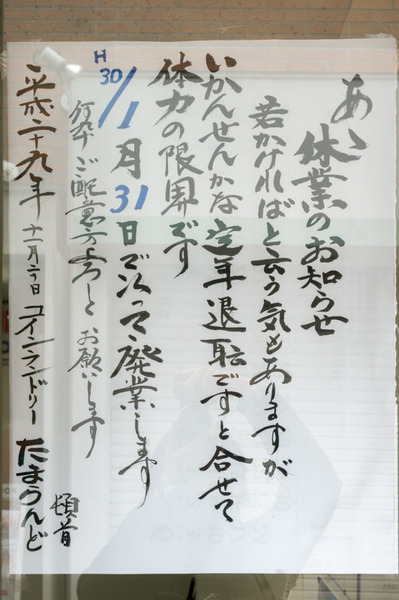 あゝ
休業のお知らせ
若かければと云う気もありますが
いかんせんかな定年退職ですと合せて
体力の限界です
H30/1月31日で以って廃業します
何卒ご配意方よろしくお願いします
平成二十九年十一月六日 コインランドリー
たまうんど
頓首